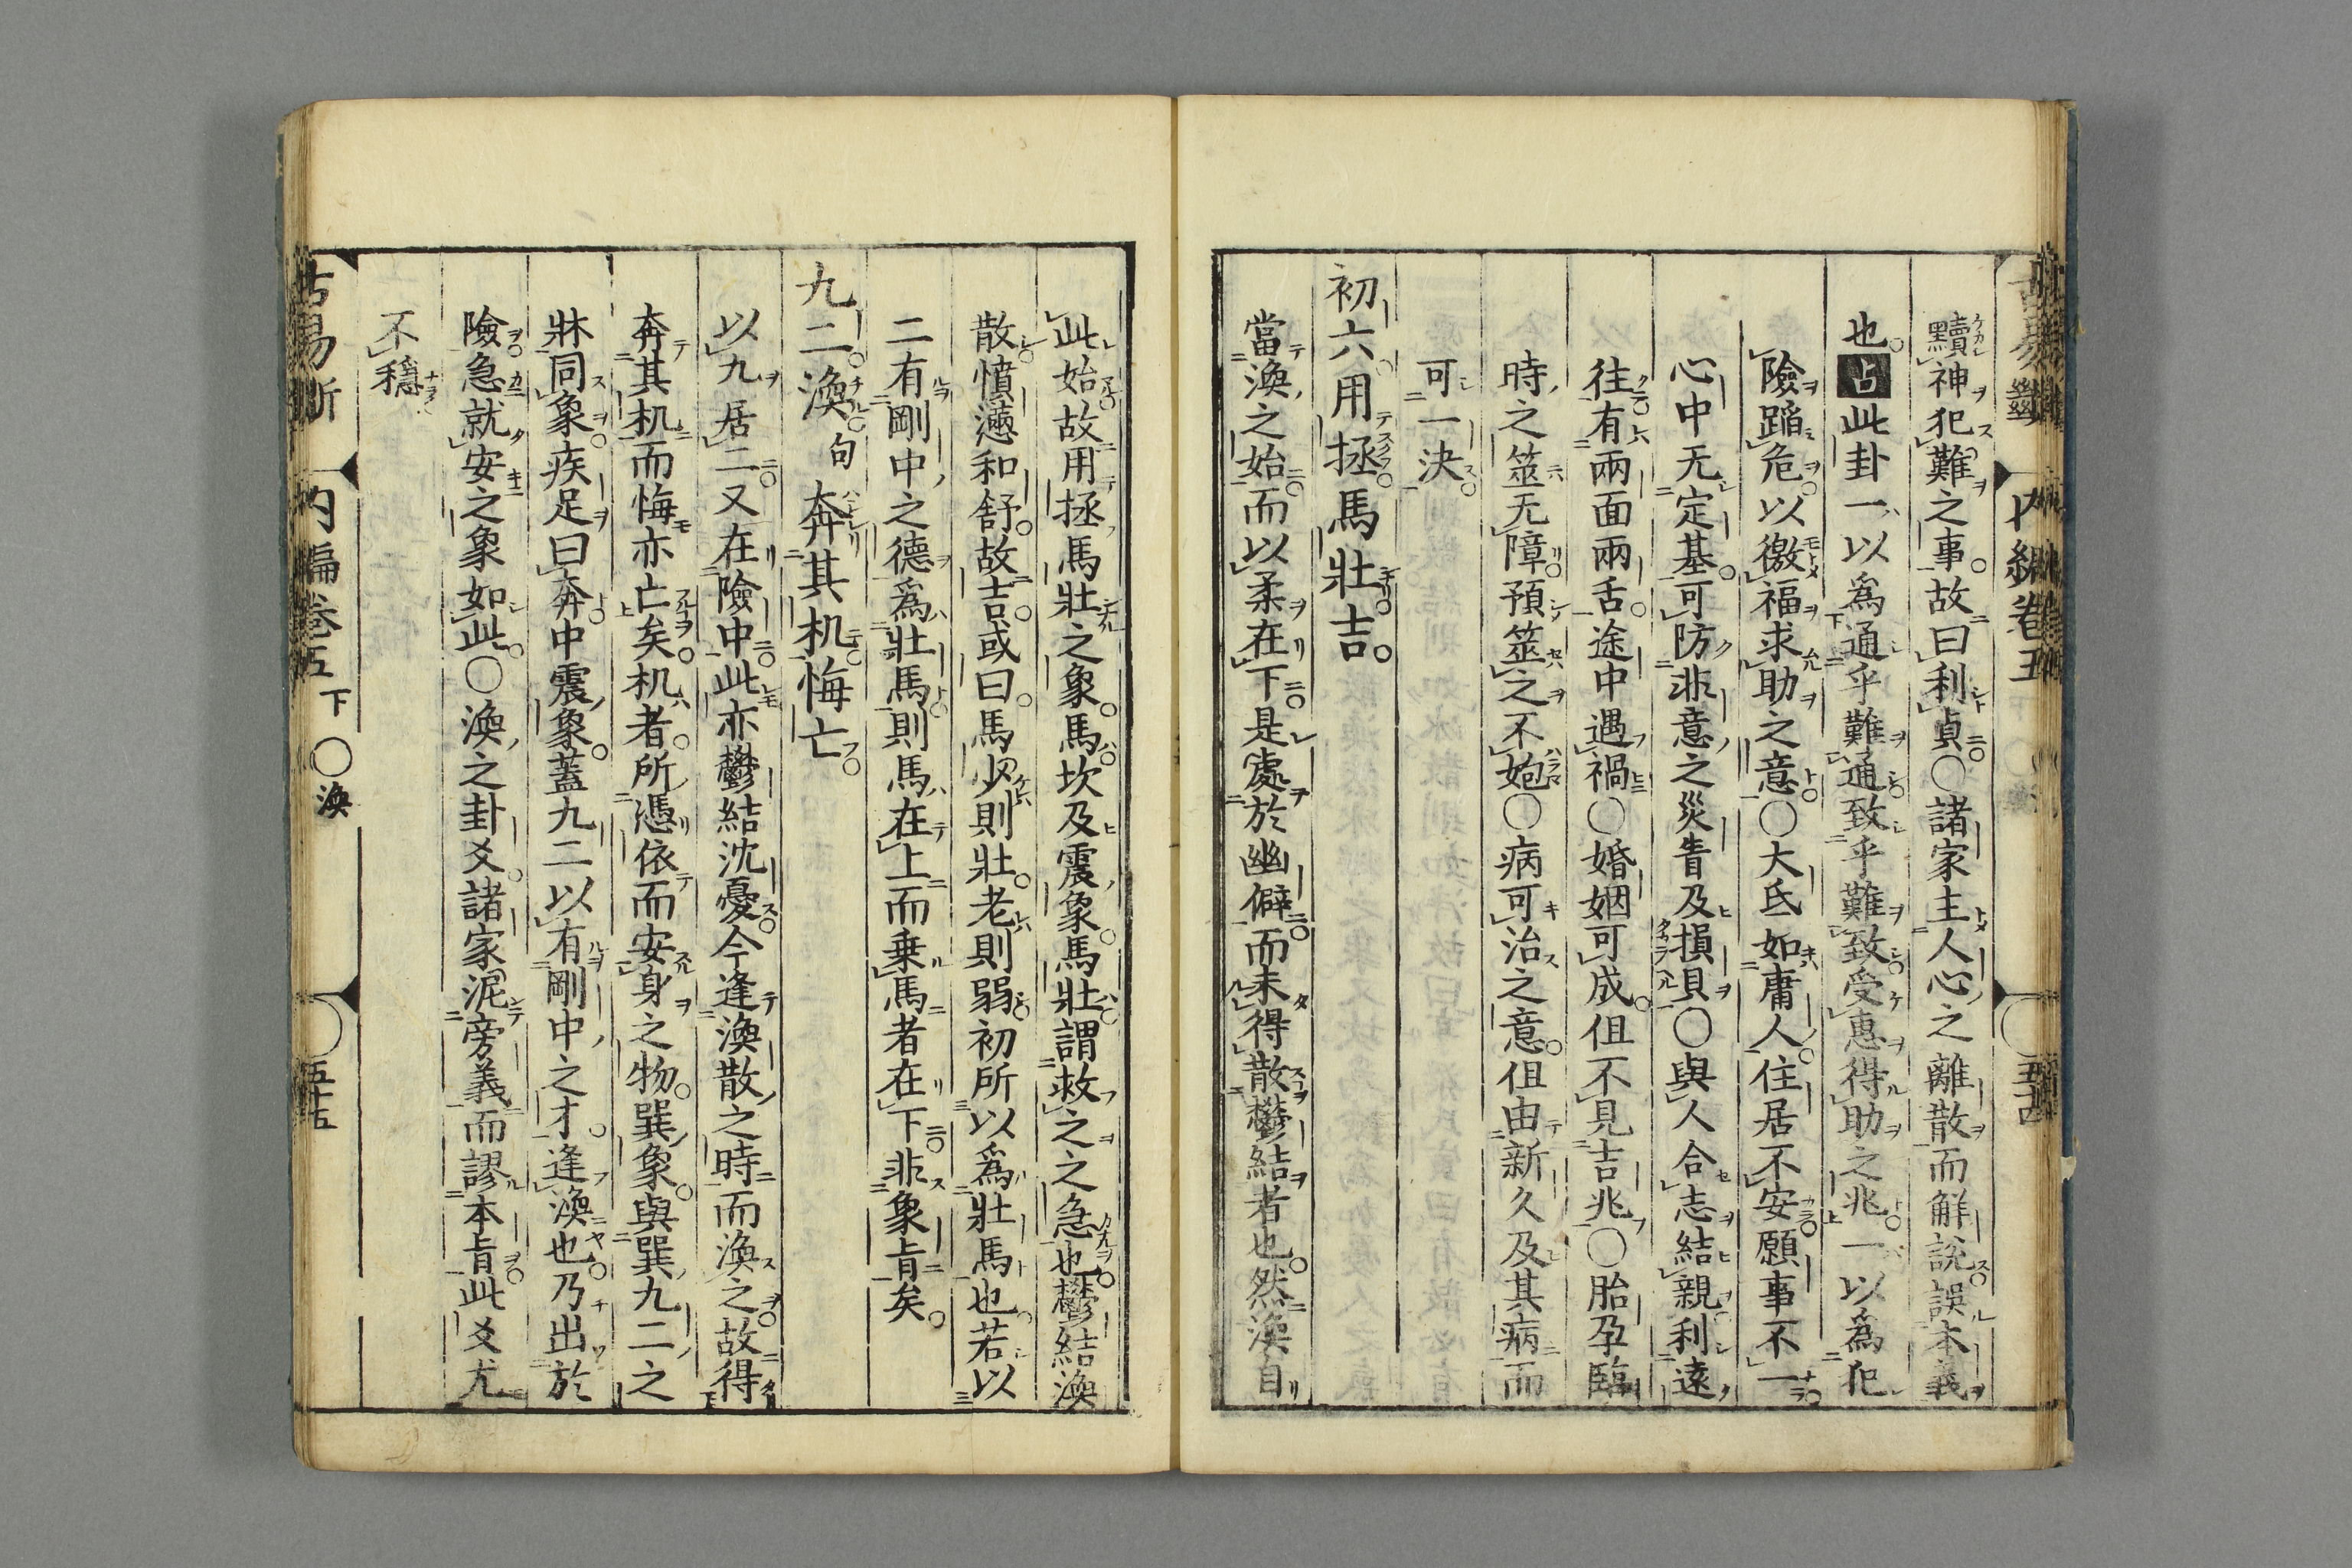 黷神犯難之事故曰利貞○諸家主人心之離散而解說誤本義
也占此卦一以爲通乎難通致乎難致受惠得助之兆一以爲犯
險蹈危以徼福求助之意○大氐如庸人住居不安願事不一
心中无定基可防非意之災眚及損貝○與人合志結親利遠
往有兩面兩舌途中遇禍○婚姻可成但不見吉兆○胎孕臨
時之筮无障預筮之不㚿○病可治之意但由新久及其病而
可一決
初六用拯馬壯吉
當渙之始而以柔在下是處於幽僻而未得散鬱結者也然渙自
此始故用拯馬壯之象馬坎及震象馬壯謂救之之急也鬱結渙
散憤懣和舒故吉或曰馬少則壯老則弱初所以爲壯馬也若以
二有剛中之德爲壯馬則馬在上而乗馬者在下非象旨矣
九二渙句奔其机悔亡
以九居二又在險中此亦鬱結沈憂今逢渙散之時而渙之故得
奔其机而悔亦亡矣机者所憑依而安身之物巽象與巽九二之
牀同象疾足曰奔中震象蓋九二以有剛中之才逢渙也乃出於
險急就安之象如此○渙之卦爻諸家泥旁義而謬本旨此爻尤
不穩
古易斷 内編卷五下 ○渙 五十五